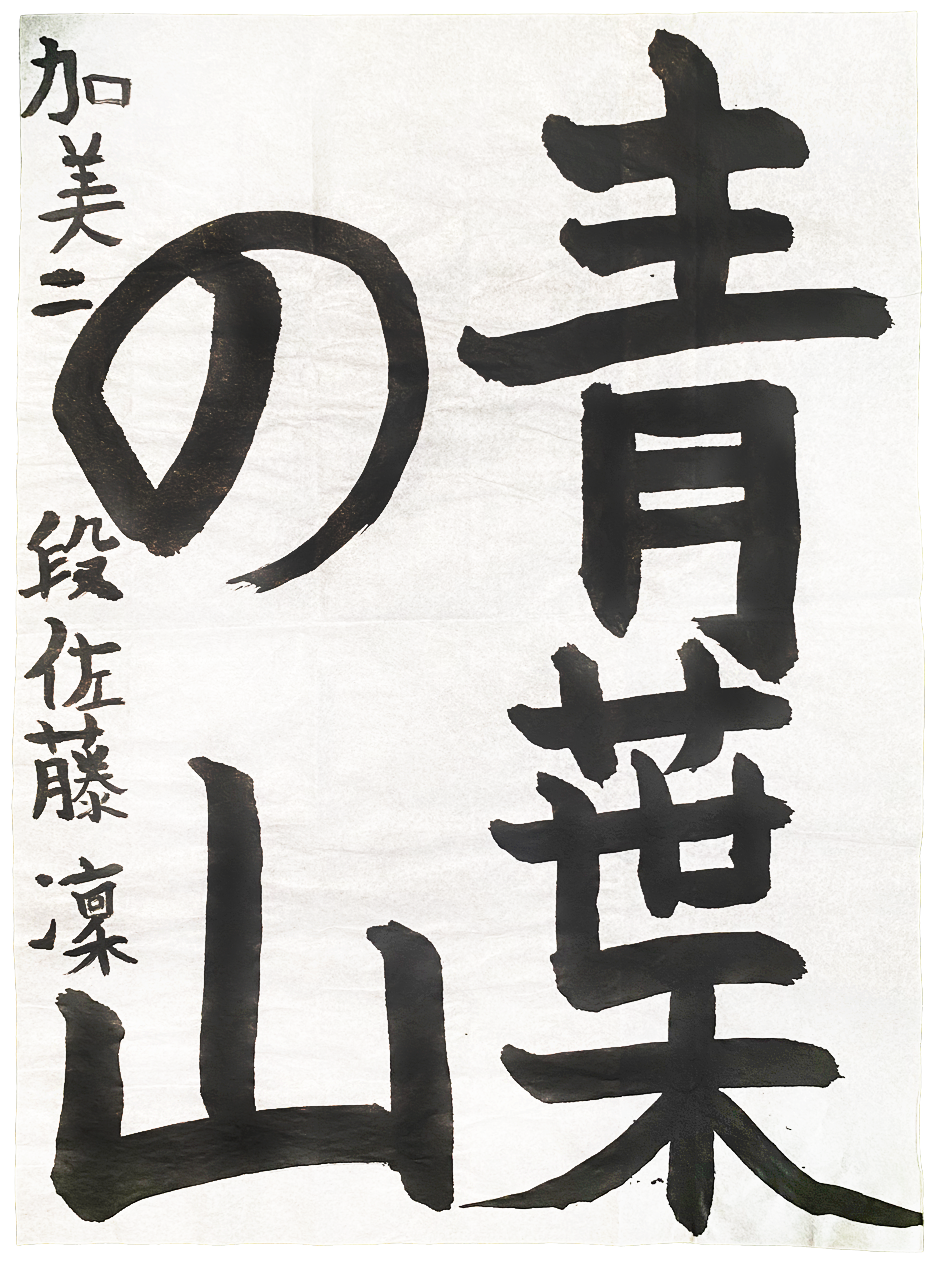 青葉
の山
加美二 段 佐藤 凜